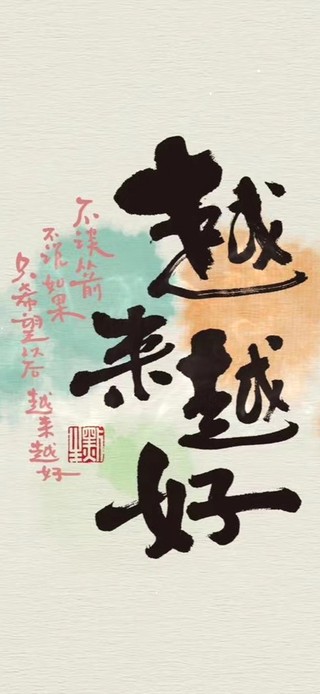 越
来越
好
不谈从前
不说如果
只希望以后
越来越好